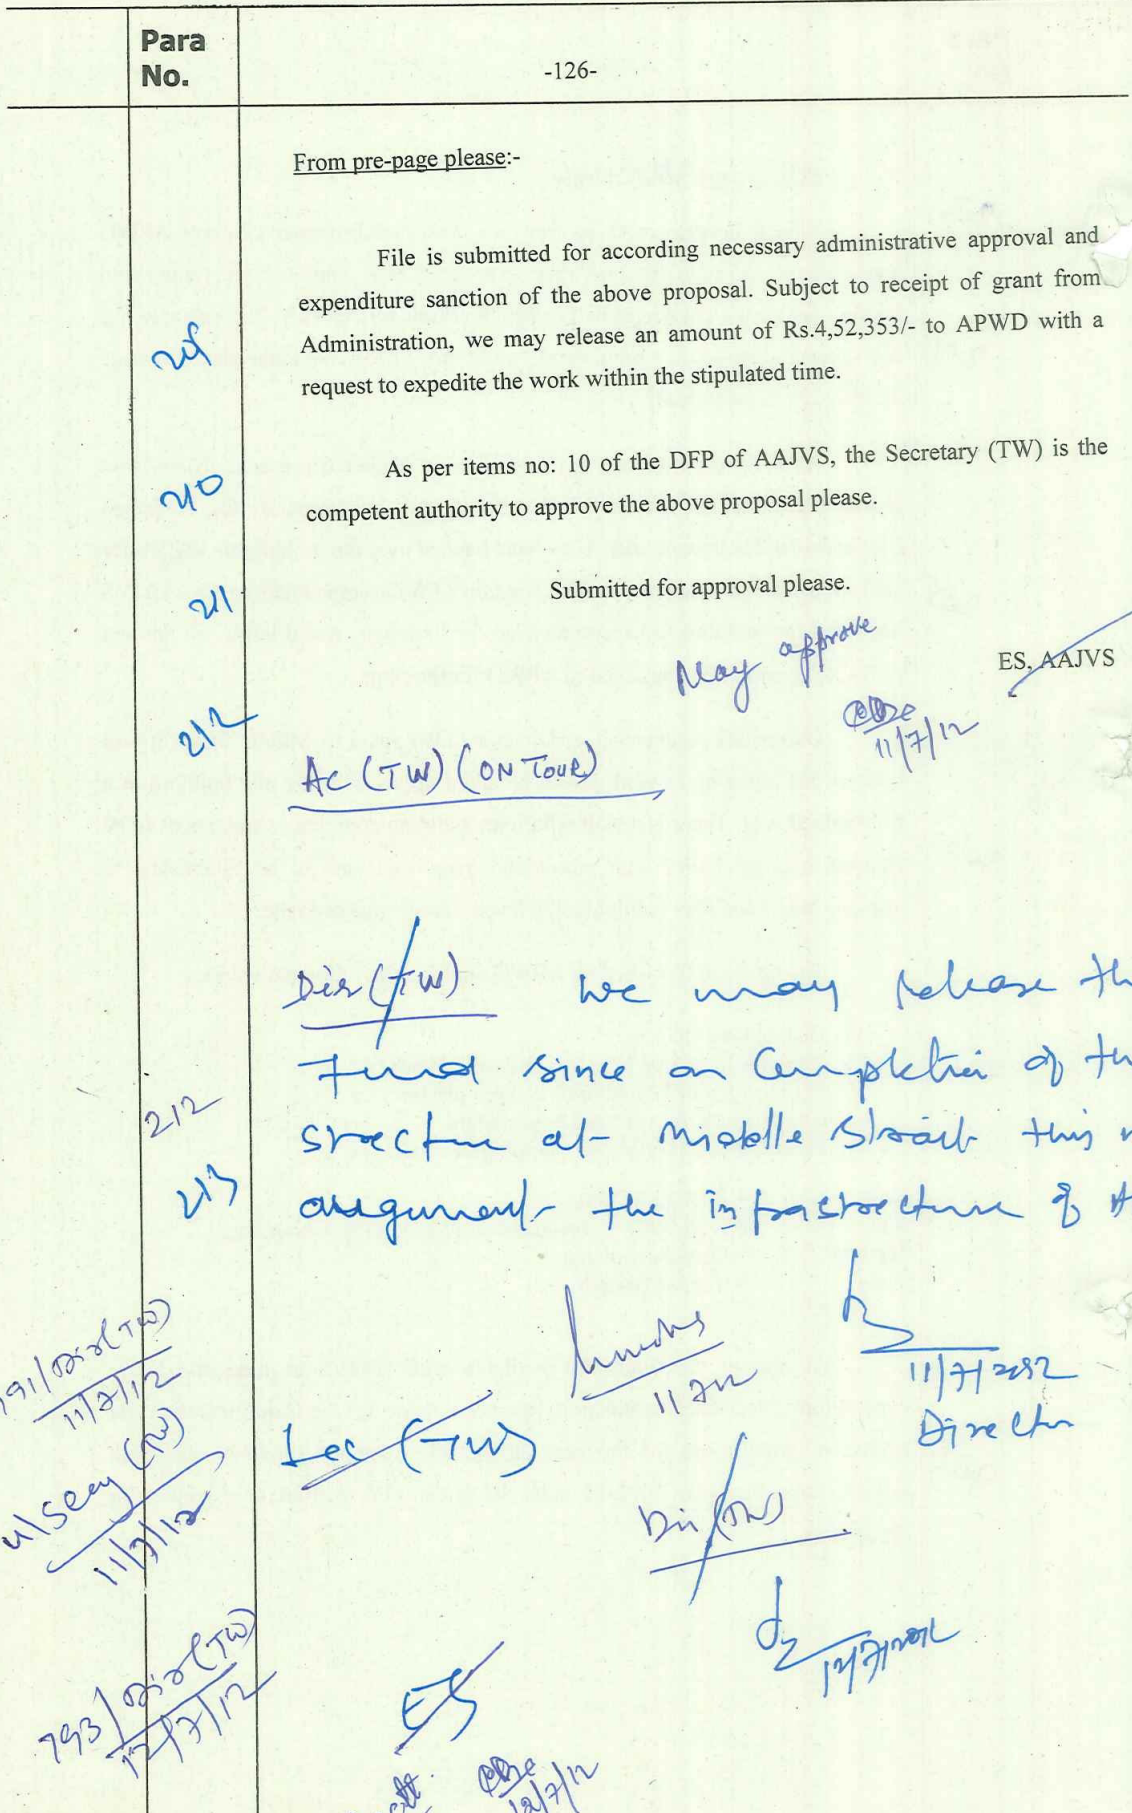 Para
No.
-126-
From pre-page please:-
File is submitted for according necessary administrative approval and
expenditure sanction of the above proposal. Subject to receipt of grant from
Administration, we may release an amount of Rs.4,52,353/- to APWD with a
request to expedite the work within the stipulated time.
As per items no: 10 of the DFP of AAJVS, the Secretary (TW) is the
210
competent authority to approve the above proposal please.
211
Submitted for approval please.
May approve
ES, AAJVS
212
11/7/12
AC (TW) (ON TOUR)
Dir (TW) We may release
Fund since on Completion of
212
at Middle Strait this
213
the infrastructure of
791/Dir(TW)
11/7/12
11/7/2012
Director
Sec (TW)
(TW)
11/7/12
Dir (TW)
12/7/2012
793/Dir(TW)
12/7/12
ES
12/7/12